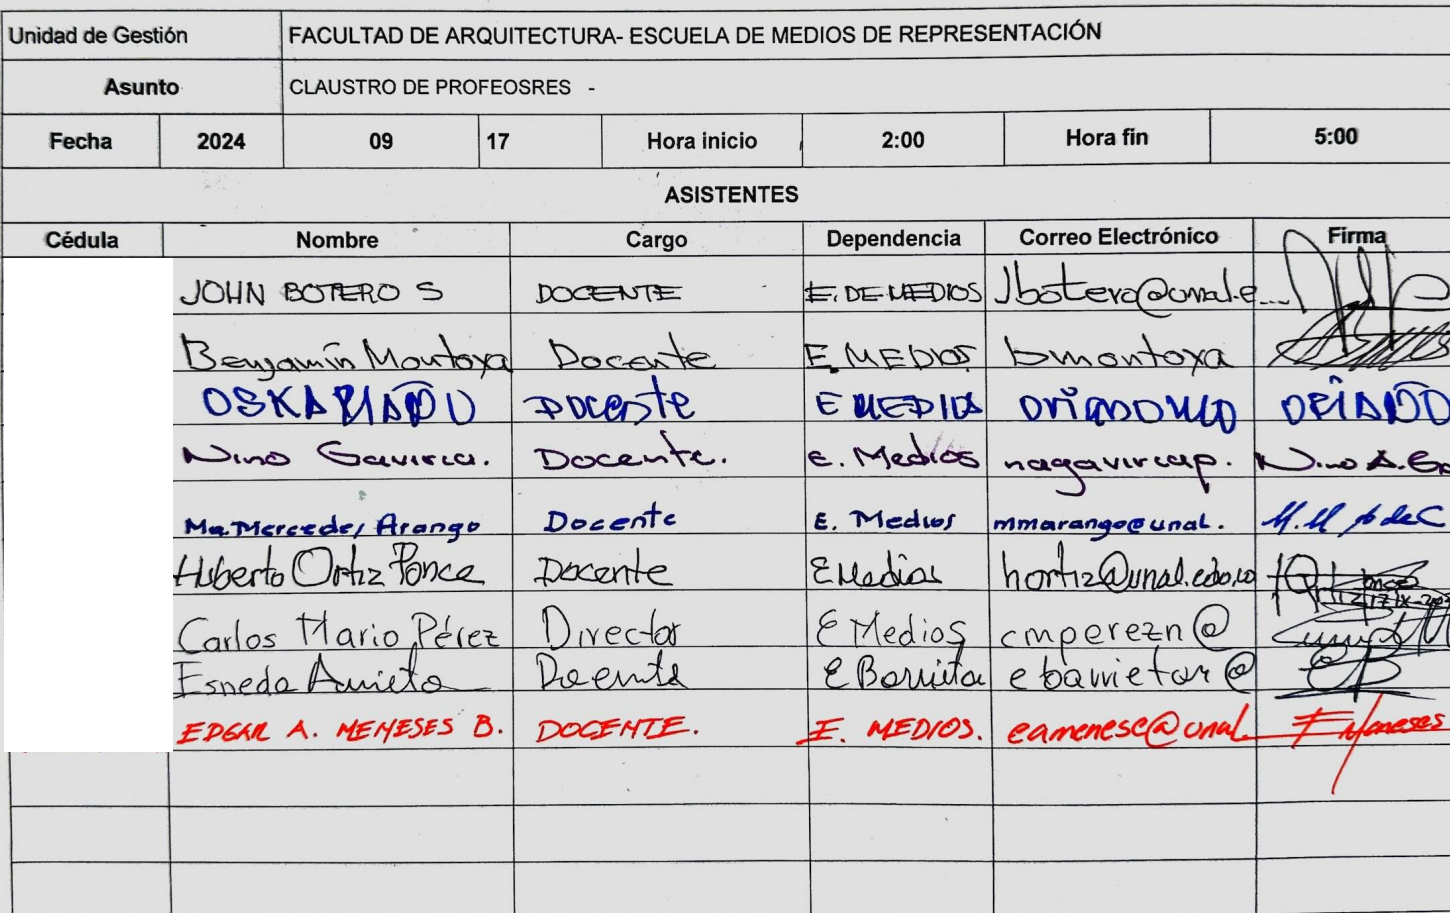 Unidad de Gestión FACULTAD DE ARQUITECTURA- ESCUELA DE MEDIOS DE REPRESENTACIÓN
Asunto CLAUSTRO DE PROFEOSRES -
Fecha 2024 09 17 Hora inicio 2:00 Hora fin 5:00
ASISTENTES
Cédula Nombre Cargo Dependencia Correo Electrónico Firma
JOHN BOTERO S DOCENTE E. DE MEDIOS Jbotero@unal.e...
Benjamín Montoya Docente E. MEDIOS bmontoya
Docente E MEDIOS
Nino Gaviria. Docente. E. Medios nagaviriap. Nino A. Ga
Ma. Mercedes Arango Docente E. Medios mmarango@unal. M.M A de C
Huberto Ortiz Ponce Docente E Medios hortiz@unal.edu.co
Carlos Mario Pérez Director E Medios cmperezn@
Esneda Docente E
EDGAR A. MENESES B. DOCENTE. E. MEDIOS. eamenese@unal. EMeneses